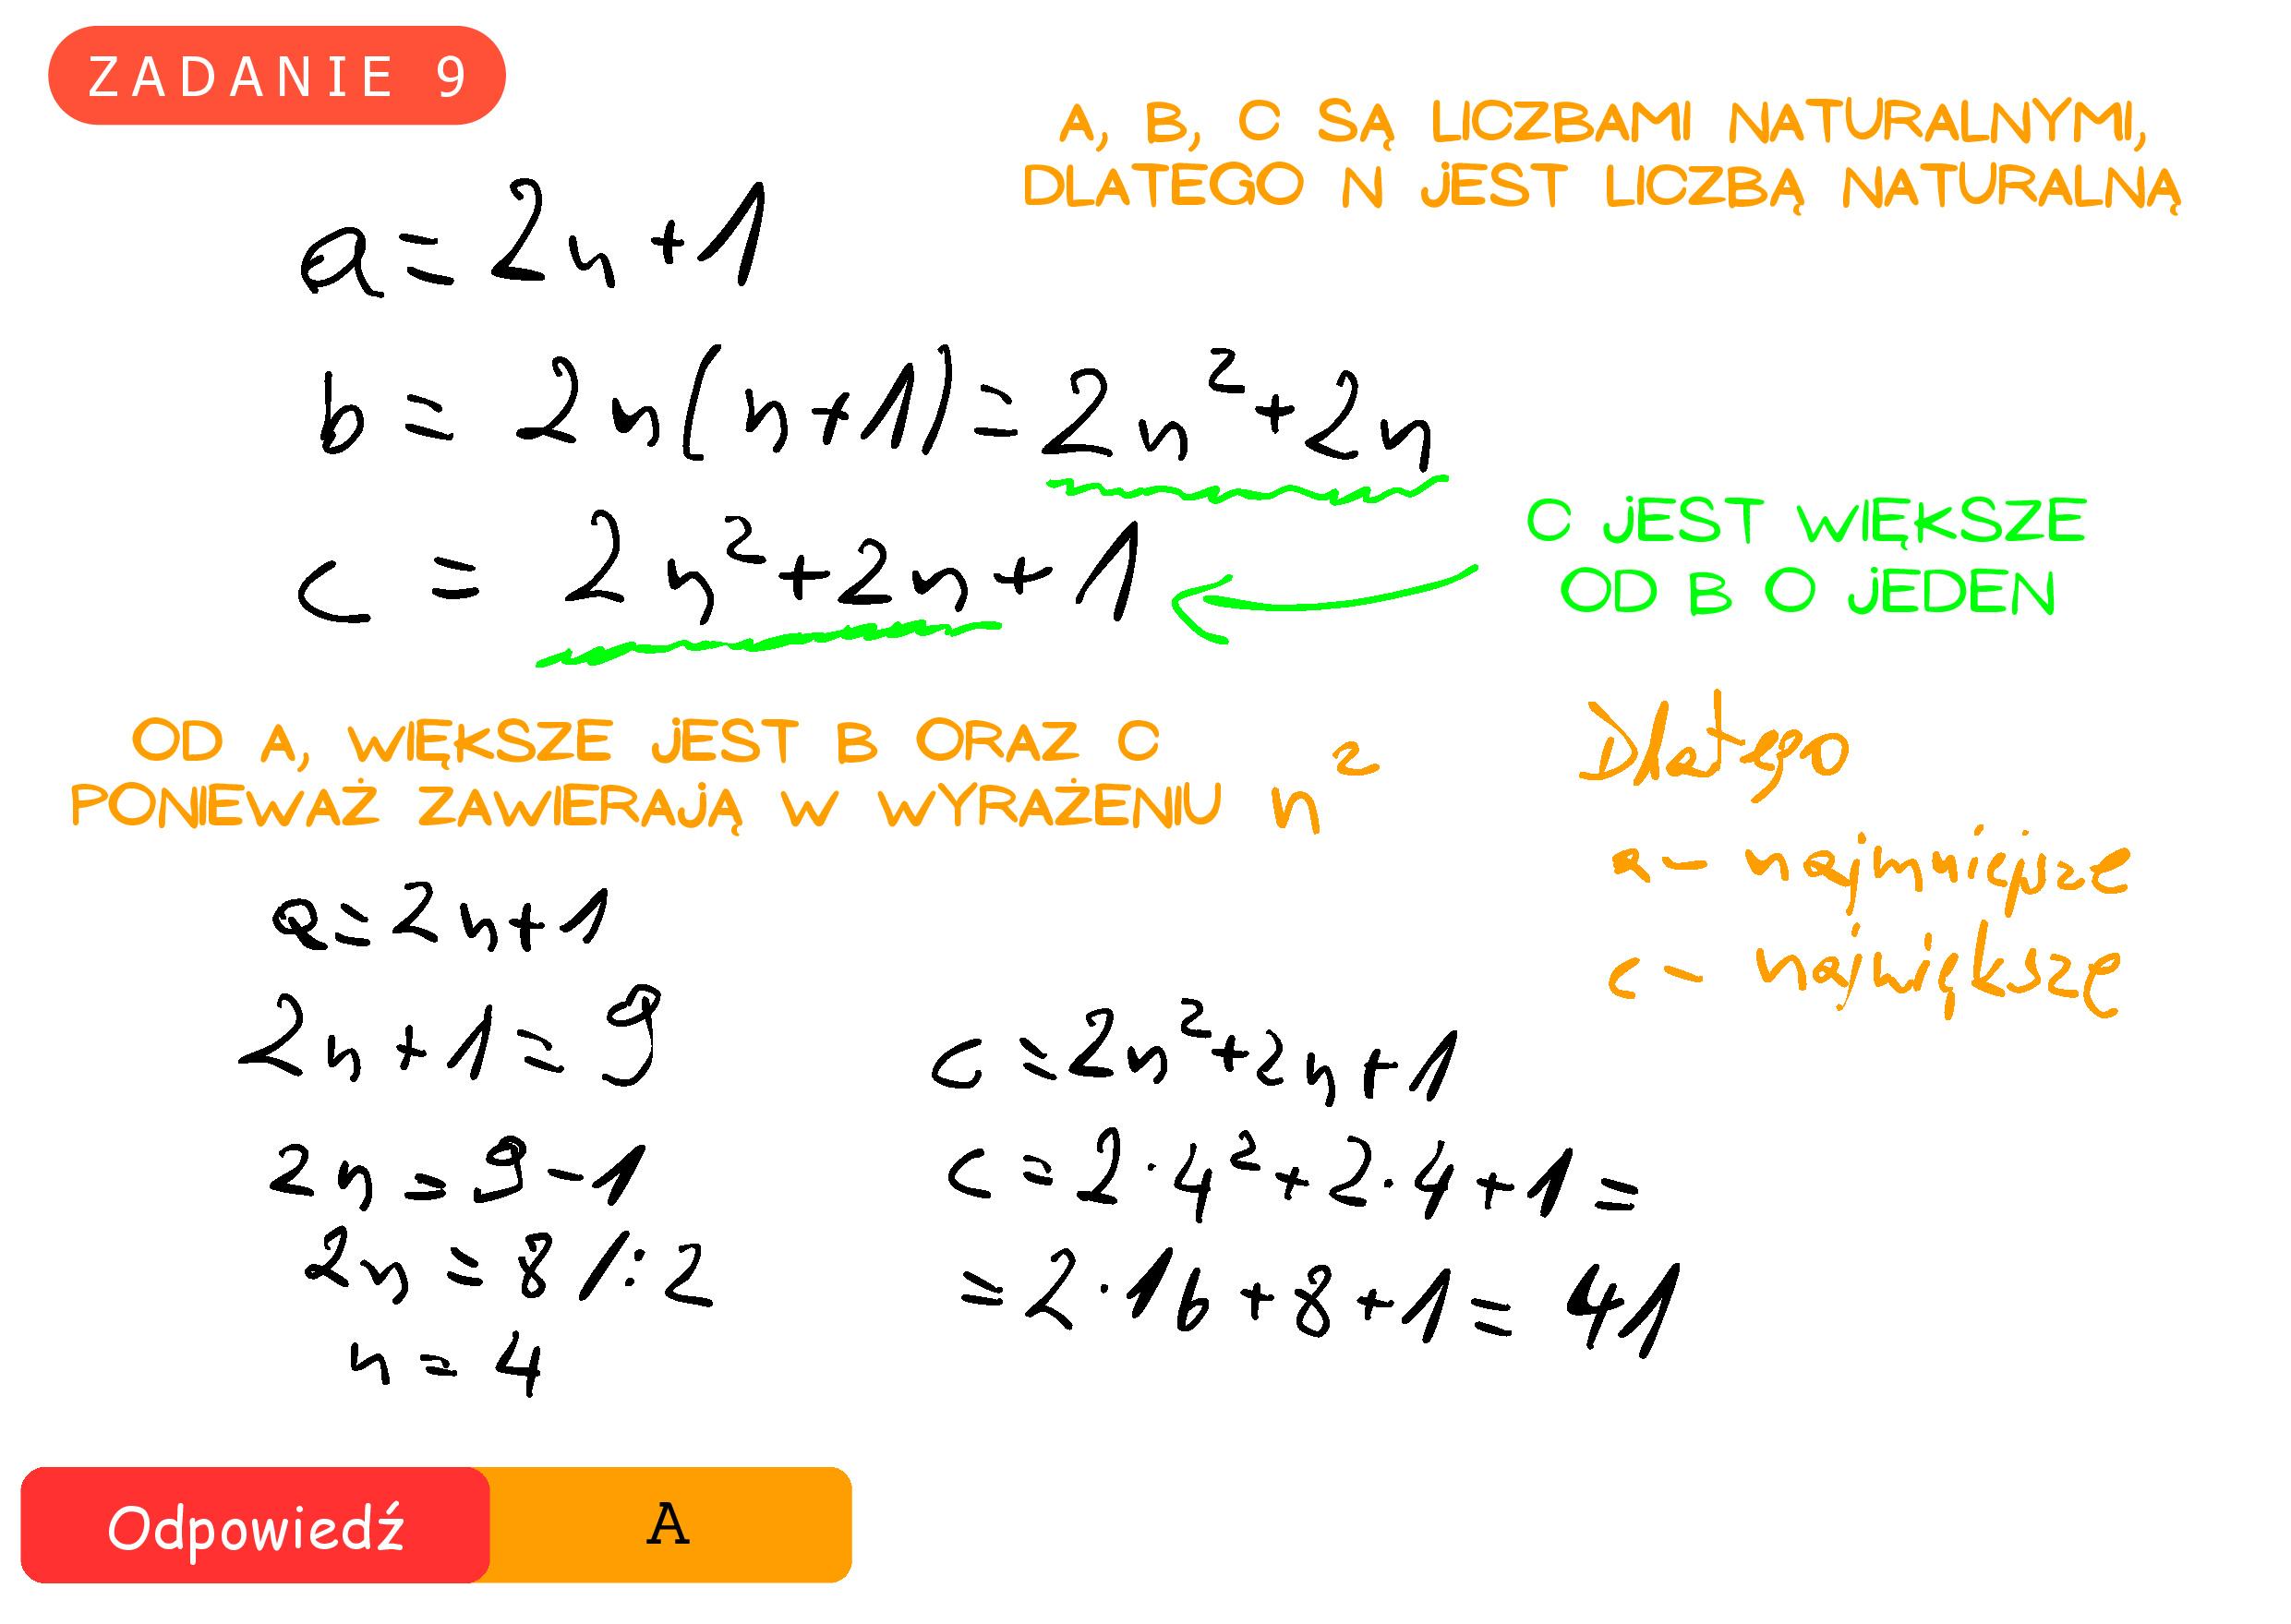 ZADANIE 9
A, B, C SĄ LICZBAMI NATURALNYMI,
DLATEGO N JEST LICZBĄ NATURALNĄ
a = 2n + 1
b = 2n(n+1) = 2n² + 2n
c = 2n² + 2n + 1
C JEST WIĘKSZE
OD B O JEDEN
OD A, WIĘKSZE JEST B ORAZ C
PONIEWAŻ ZAWIERAJĄ W WYRAŻENIU n²
Dlatego
a - najmniejsze
c - największe
a = 2n + 1
2n + 1 = 9
2n = 9 - 1
2n = 8 /:2
n = 4
c = 2n² + 2n + 1
c = 2·4² + 2·4 + 1 =
= 2·16 + 8 + 1 = 41
Odpowiedź A